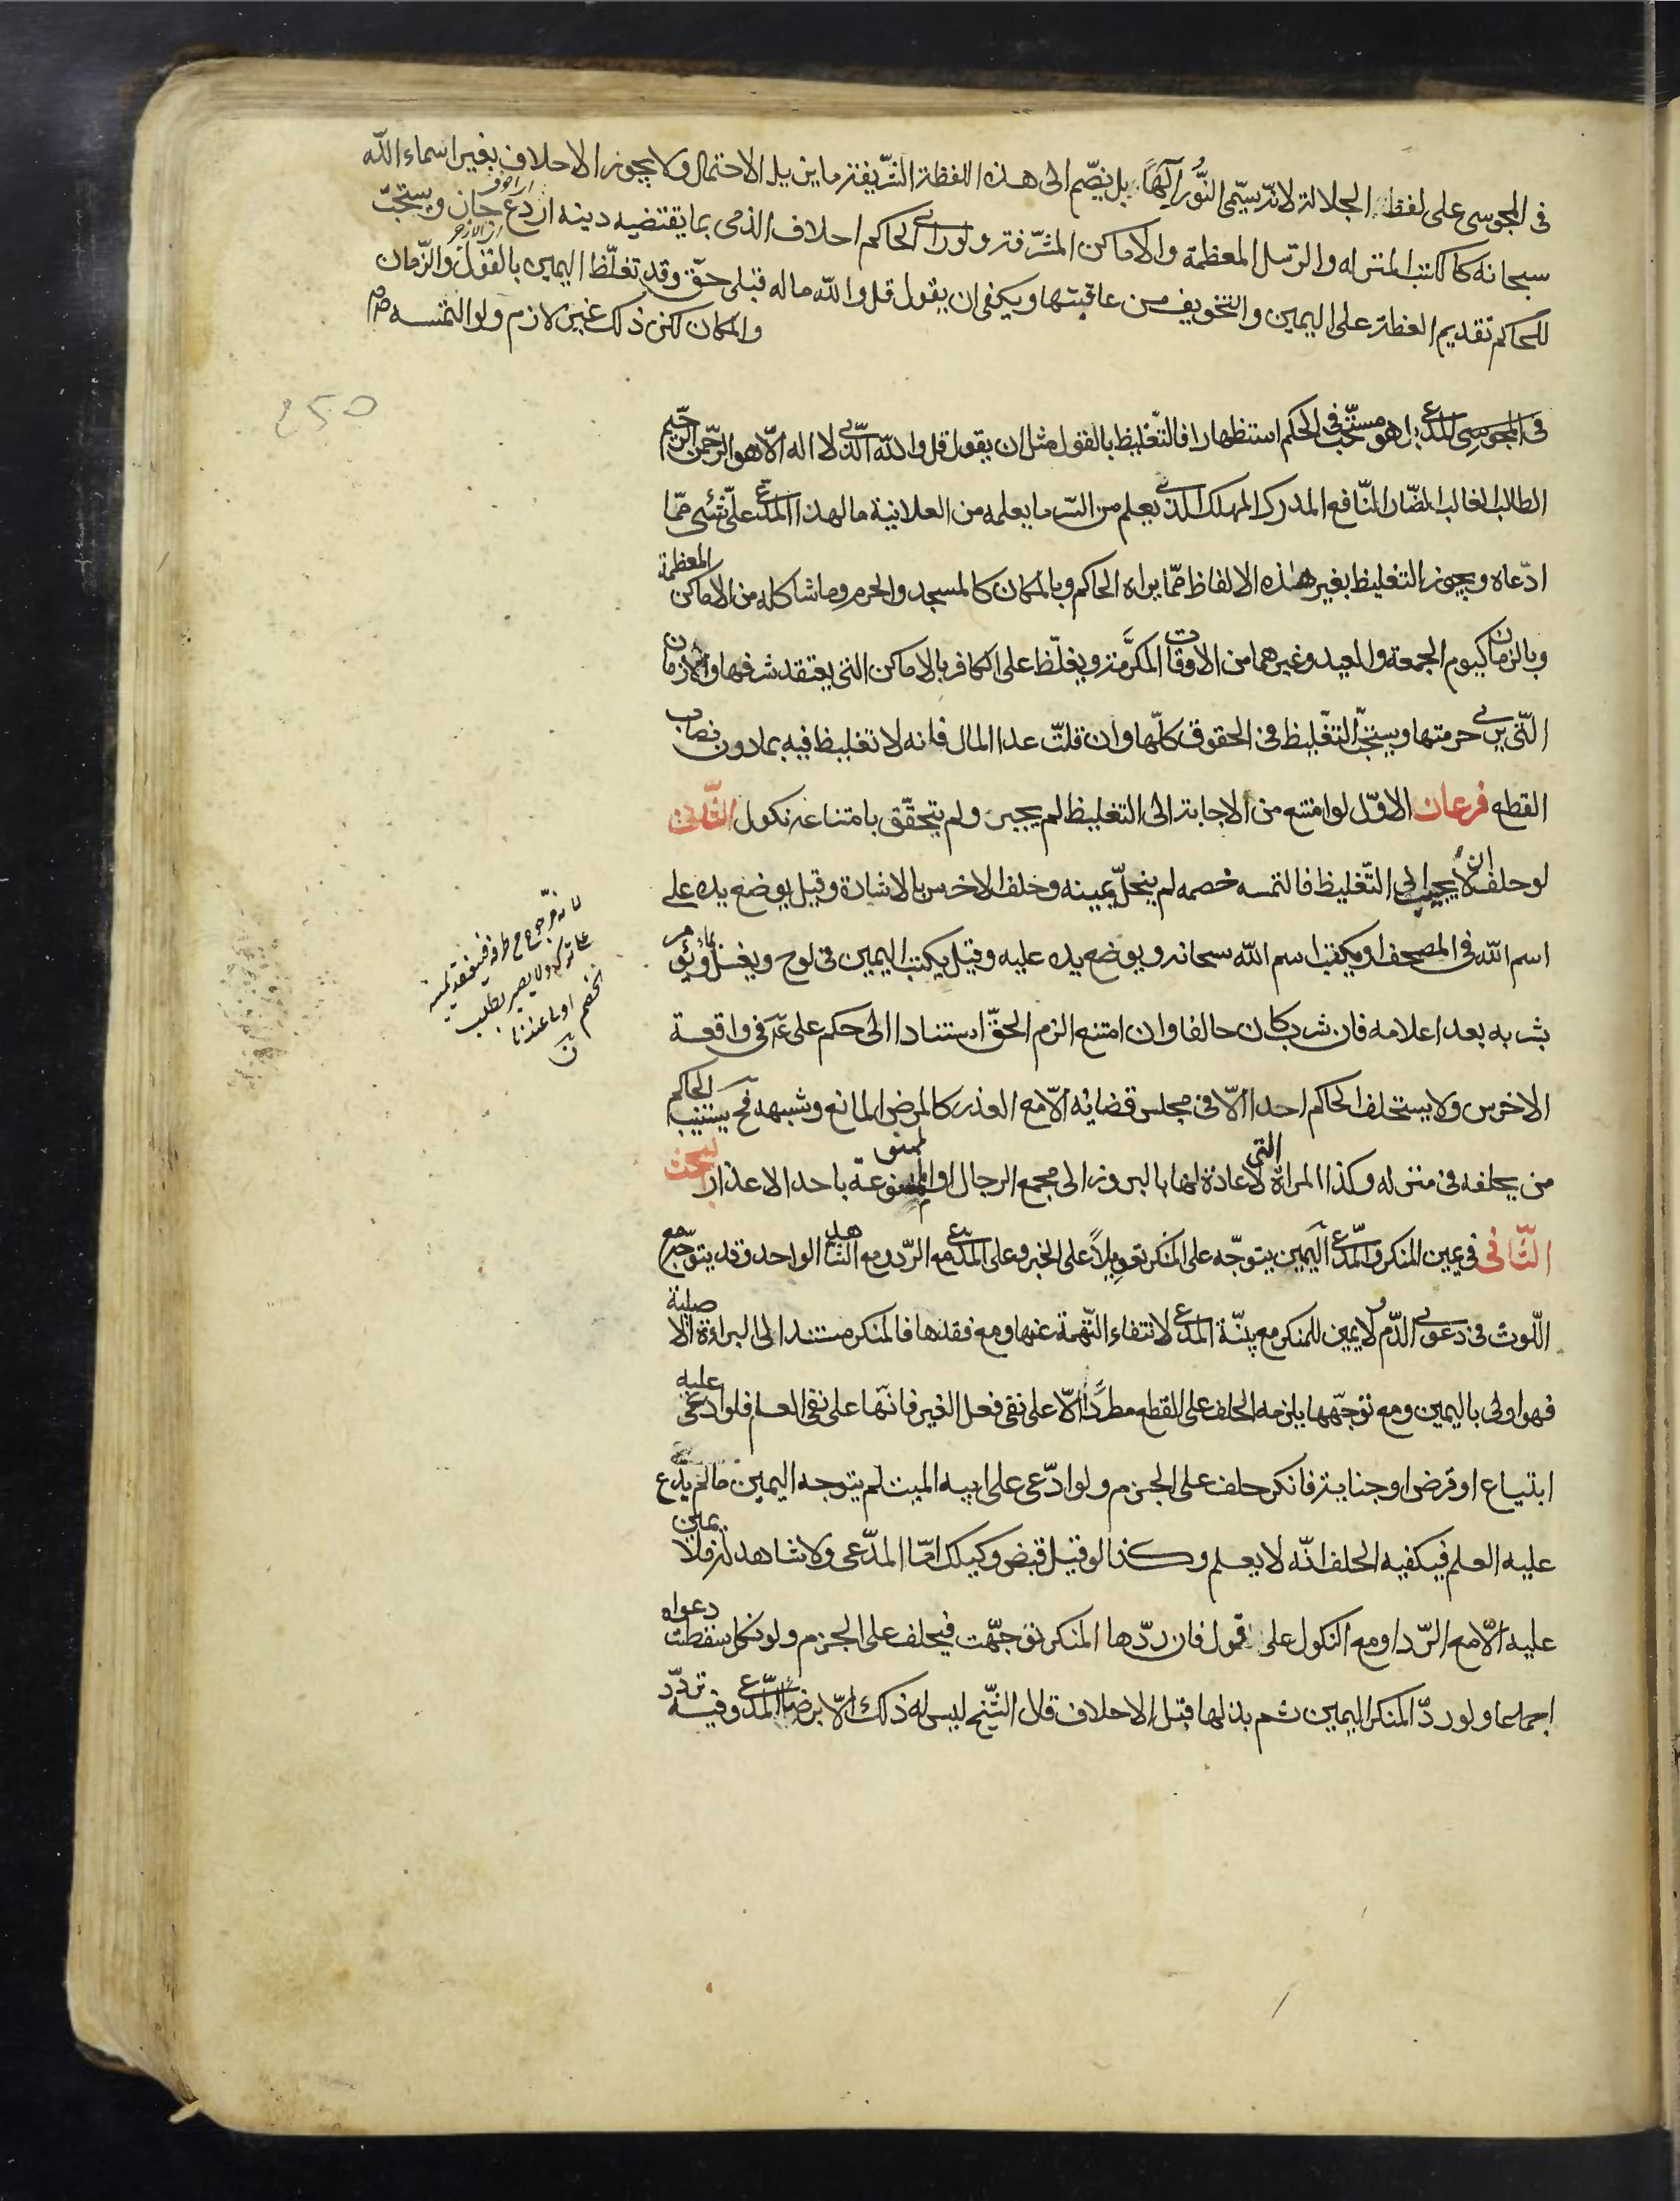 في المجوسي على لفظ الجلالة لانه سيمّى النُّور آلهًا بل يضّم الى هذه اللفظة الشّريفة ما يزيل الاحتمال ولا يجوز الاحلاف بغير اسماء الله
سبحانه كالكتب المنزله والرّسل المعظمة والاماكن المشّرفة ولو راى الحاكم احلاف الذمى بما يقتضيه دينه اردع جاز ويستحبّ
للحاكم تقديم العظة على اليمين والتخويف من عاقبتها ويكفى ان يقول قل والله ماله قبلى حقّ وقد تغلّظ اليمين بالقول والزّمان
والمكان لكن ذلك غير لازم ولو التمسه
المدعى بل هو مستحبّ فى الحكم استظهارا فالتّغليظ بالقول مثل ان يقول قل والله الّذى لا اله الّا هو الرّحمن الرّحيم
الطالب الغالب الضّار النّافع المدرك المهلك الذى يعلم من السّر ما يعلمه من العلانية ما لهذا المدّعى علىّ شئ ممّا
ادّعاه ويجوز التغليظ بغير هذه الالفاظ ممّا يراه الحاكم وبالمكان كالمسجد والحرم وما شاكله من الاماكن المعظمة
وبالزمان كيوم الجمعة والعيد وغيرهما من الاوقات المكرّمة ويغلّظ على الكافر بالاماكن التى يعتقد شرفها والازمان
الّتى يرى حرمتها ويستحبّ التّغليظ فى الحقوق كلّها وان قلتّ عدا المال فانه لا تغليظ فيه بما دون نصاب
القطع فرعان الاوّل لو امتنع من الاجابة الى التغليظ لم يجبر ولم يتحقّق بامتناعه نكول الثّانى
لو حلف ان لا يجيب الى التّغليظ فالتمسه خصمه لم ينحلّ يمينه وحلف الاخرس بالاشارة وقيل يوضع يده على
اسم الله فى المصحف او يكتب اسم الله سبحانه ويوضع يده عليه وقيل يكتب اليمين فى لوح ويغسل ويؤمر
بشربه بعد اعلامه فان شرب كان حالفا وان امتنع الزم الحقّ استنادا الى حكم على عَم فى واقعة
الاخرس ولا يستحلف الحاكم احدا الّا فى مجلس قضائه الّا مع العذر كالمرض المانع وشبهه فح يستنيب الحاكم
من يحلفه فى منزله وكذا المراة التى لا عادة لها بالبروز الى مجمع الرجال او الممنوعة باحد الاعذار البحث
الثّانى فى يمين المنكر والمدّعى اليمين يتوجّه على المنكر تعويلاً على الخبر وعلى المدّعى مع الرّد ومع الشاهد الواحد وقد يتوجّه مع
اللّوث فى دعوى الدّم ولا يمين للمنكر مع بيّنة المدعى لانتفاء التّهمة عنها ومع فقدها فالمنكر مستند الى البراءة الاصلية
فهو اولى باليمين ومع توجّهها يلزمه الحلف على القطع مطّردًا الّا على نفى فعل الغير فانّها على نفى العلم فلو ادعى عليه
ابتياع او قرض او جناية فانكر حلف على الجزم ولو ادّعى على ابيه الميت لم يتوجه اليمين ما لم يدّع
عليه العلم فيكفيه الحلف انّه لا يعلم وكذا لو قيل قبض وكيلك امّا المدّعى ولا شاهد له فلا يمين
عليه الّا مع الرّد او مع النكول على قول فان ردّها المنكر توجّهت فيحلف على الجزم ولو نكل سقطت دعواه
اجماعا ولو ردّ المنكر اليمين ثم بذلها قبل الاحلاف قال الشّيخ ليس له ذلك الّا برضا المدّعى وفيه تردّد